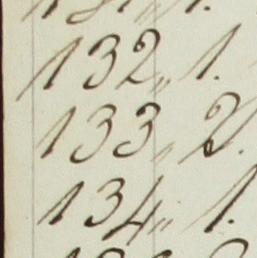 132„ 1.
133„ 2.
134„ 1.